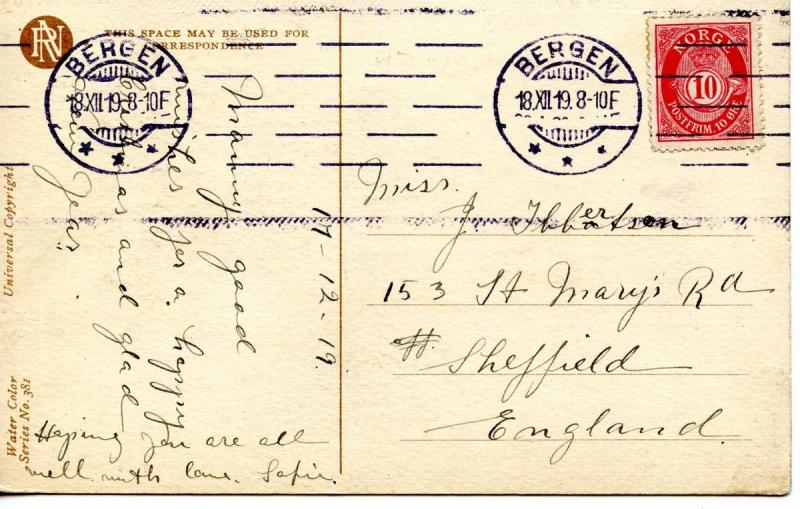 THIS SPACE MAY BE USED FOR
CORRESPONDENCE
BERGEN
18.XII.19.8-10F
BERGEN
18.XII.19.8-10F
NORGE
10
POSTFRIM. 10 ØRE
17-12-19.
Many good
wishes for a happy
Christmas and glad
New Year
Hoping you are all
well with love. Sofie.
Miss.
J. Ibbertson
153 St Mary's Rd
Sheffield
England.
Universal Copyright
Water Color
Series No. 381